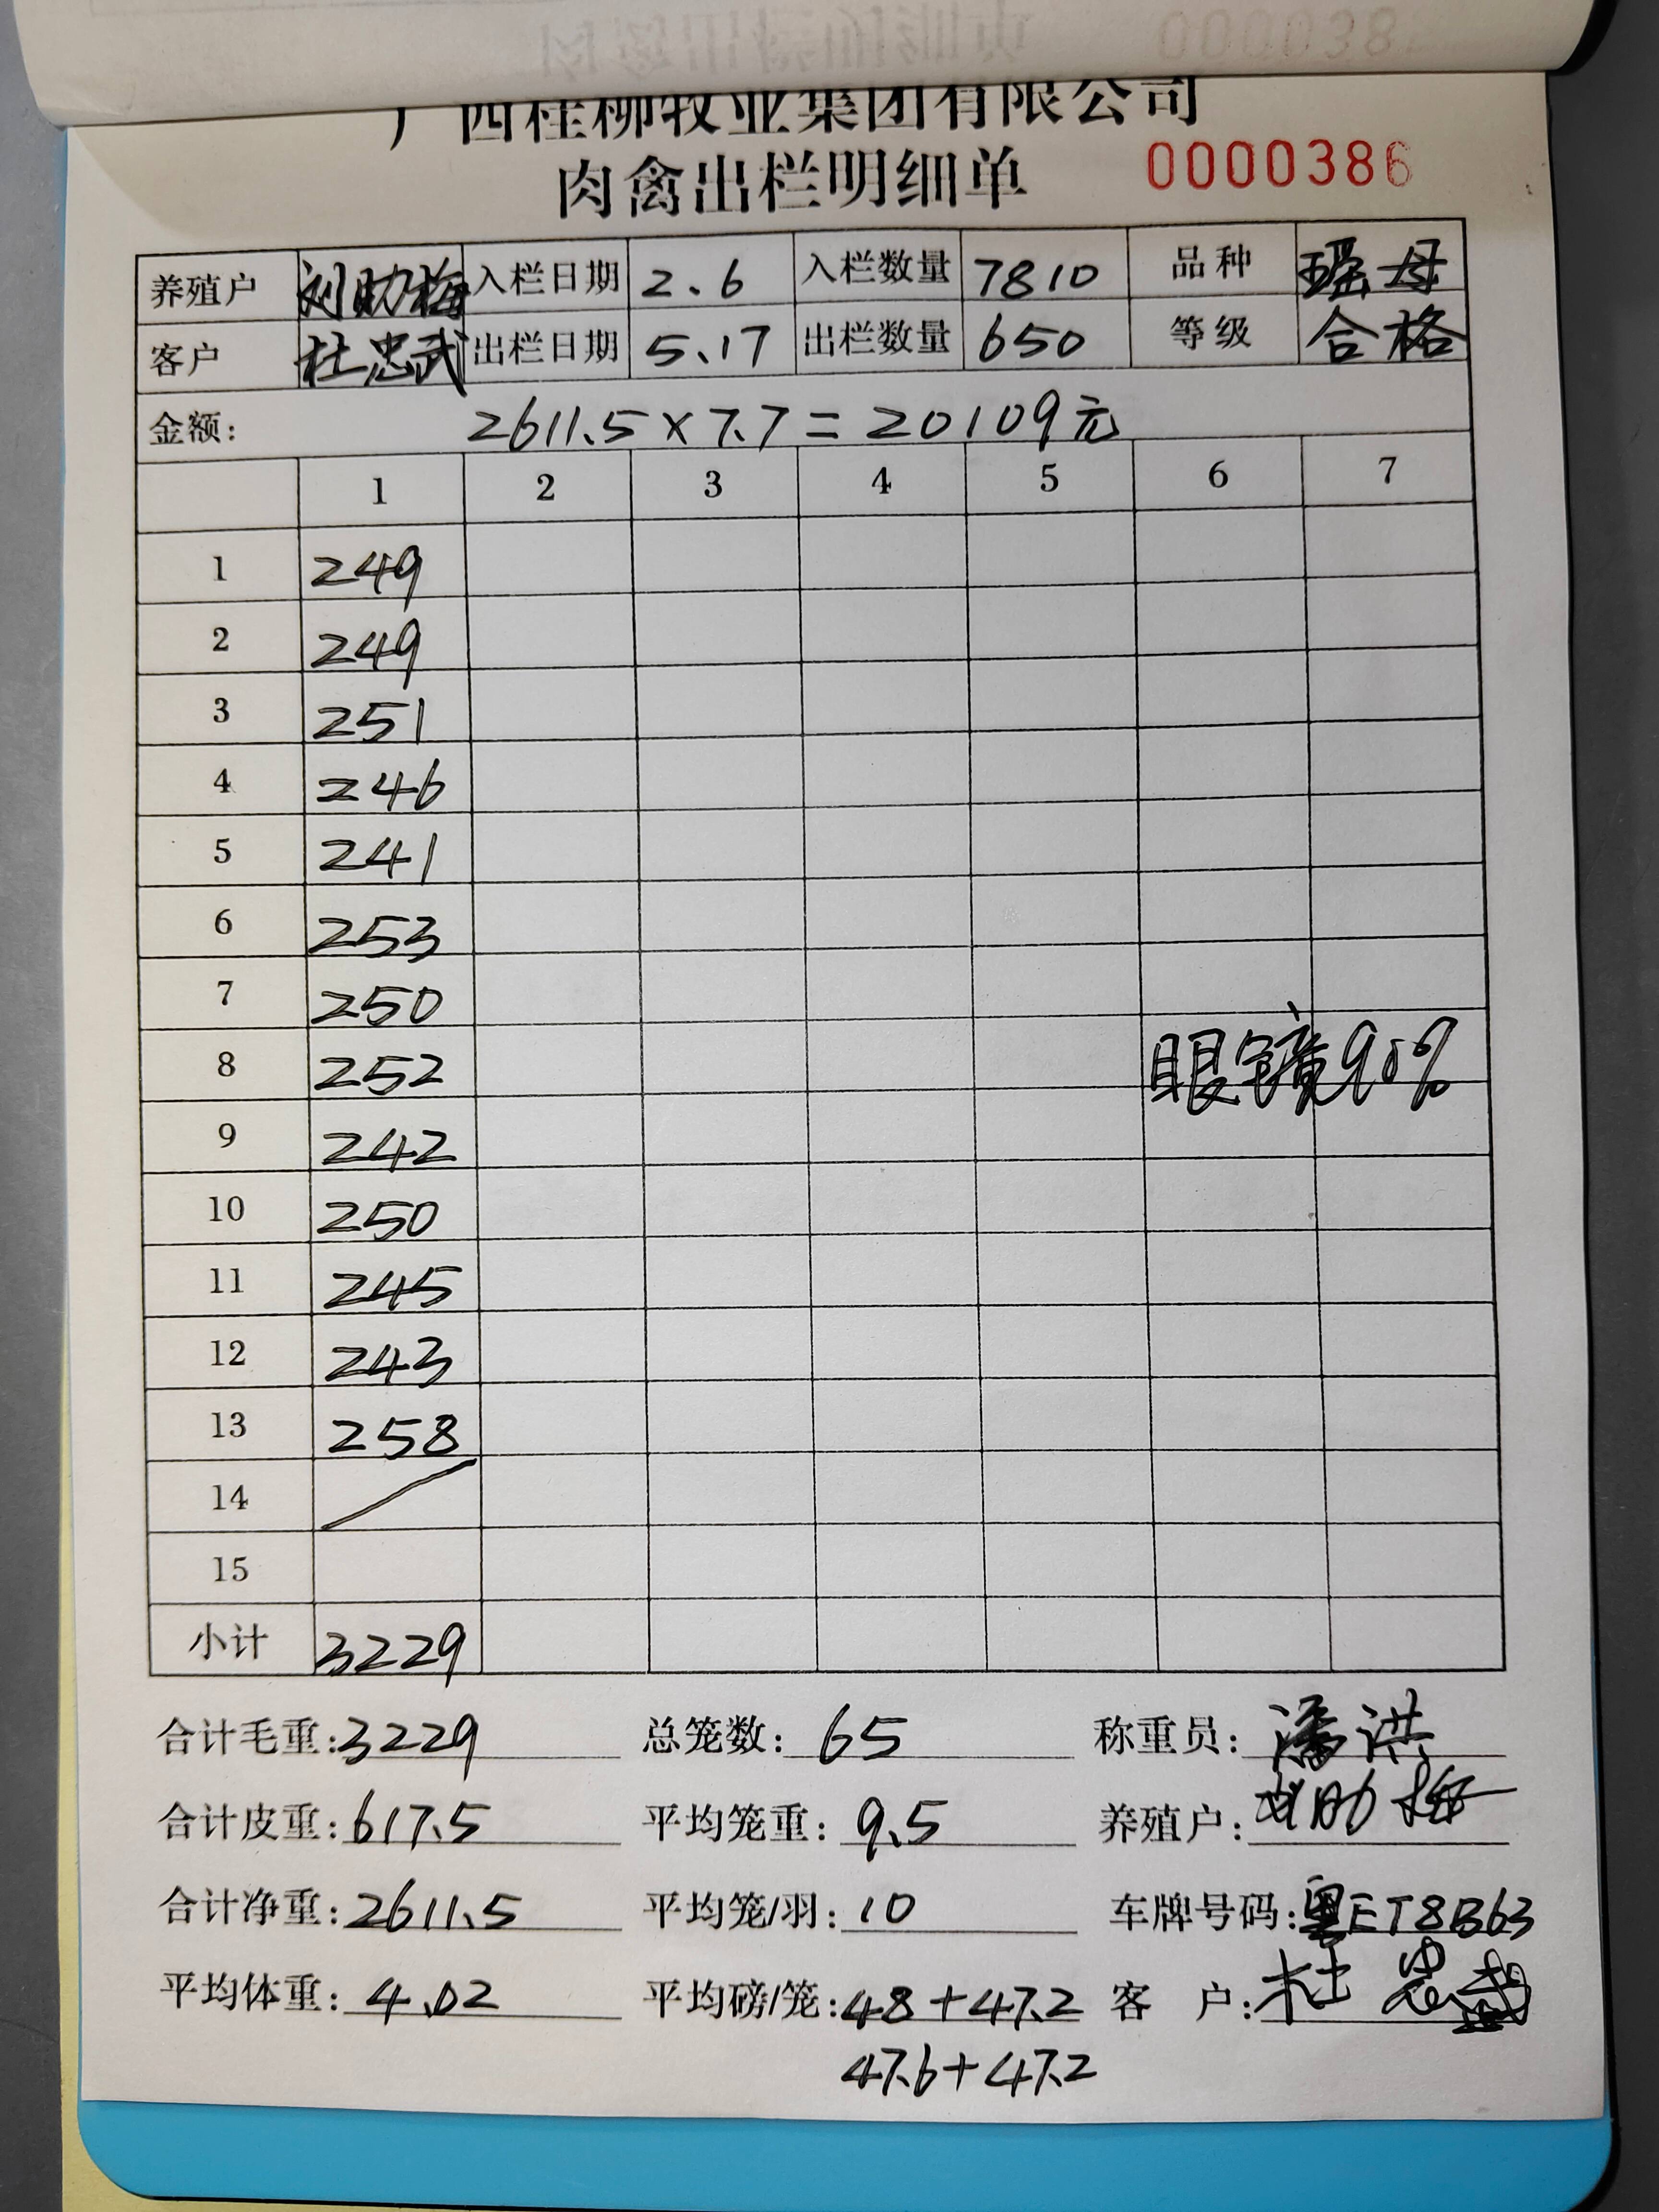 广西桂柳牧业集团有限公司
肉禽出栏明细单 0000386
养殖户 刘助梅 入栏日期 2.6 入栏数量 7810 品种 瑶母
客户 杜忠武 出栏日期 5.17 出栏数量 650 等级 合格
金额: 2611.5×7.7=20109元
1 2 3 4 5 6 7
1 249
2 249
3 251
4 246
5 241
6 253
7 250
8 252 眼镜90%
9 242
10 250
11 245
12 243
13 258
14
15
小计 3229
合计毛重:3229 总笼数:65 称重员:潘洪
合计皮重:617.5 平均笼重:9.5 养殖户:刘助梅
合计净重:2611.5 平均笼/羽:10 车牌号码:粤ET8B63
平均体重:4.02 平均磅/笼:48+47.2 客户:杜忠武
47.6+47.2